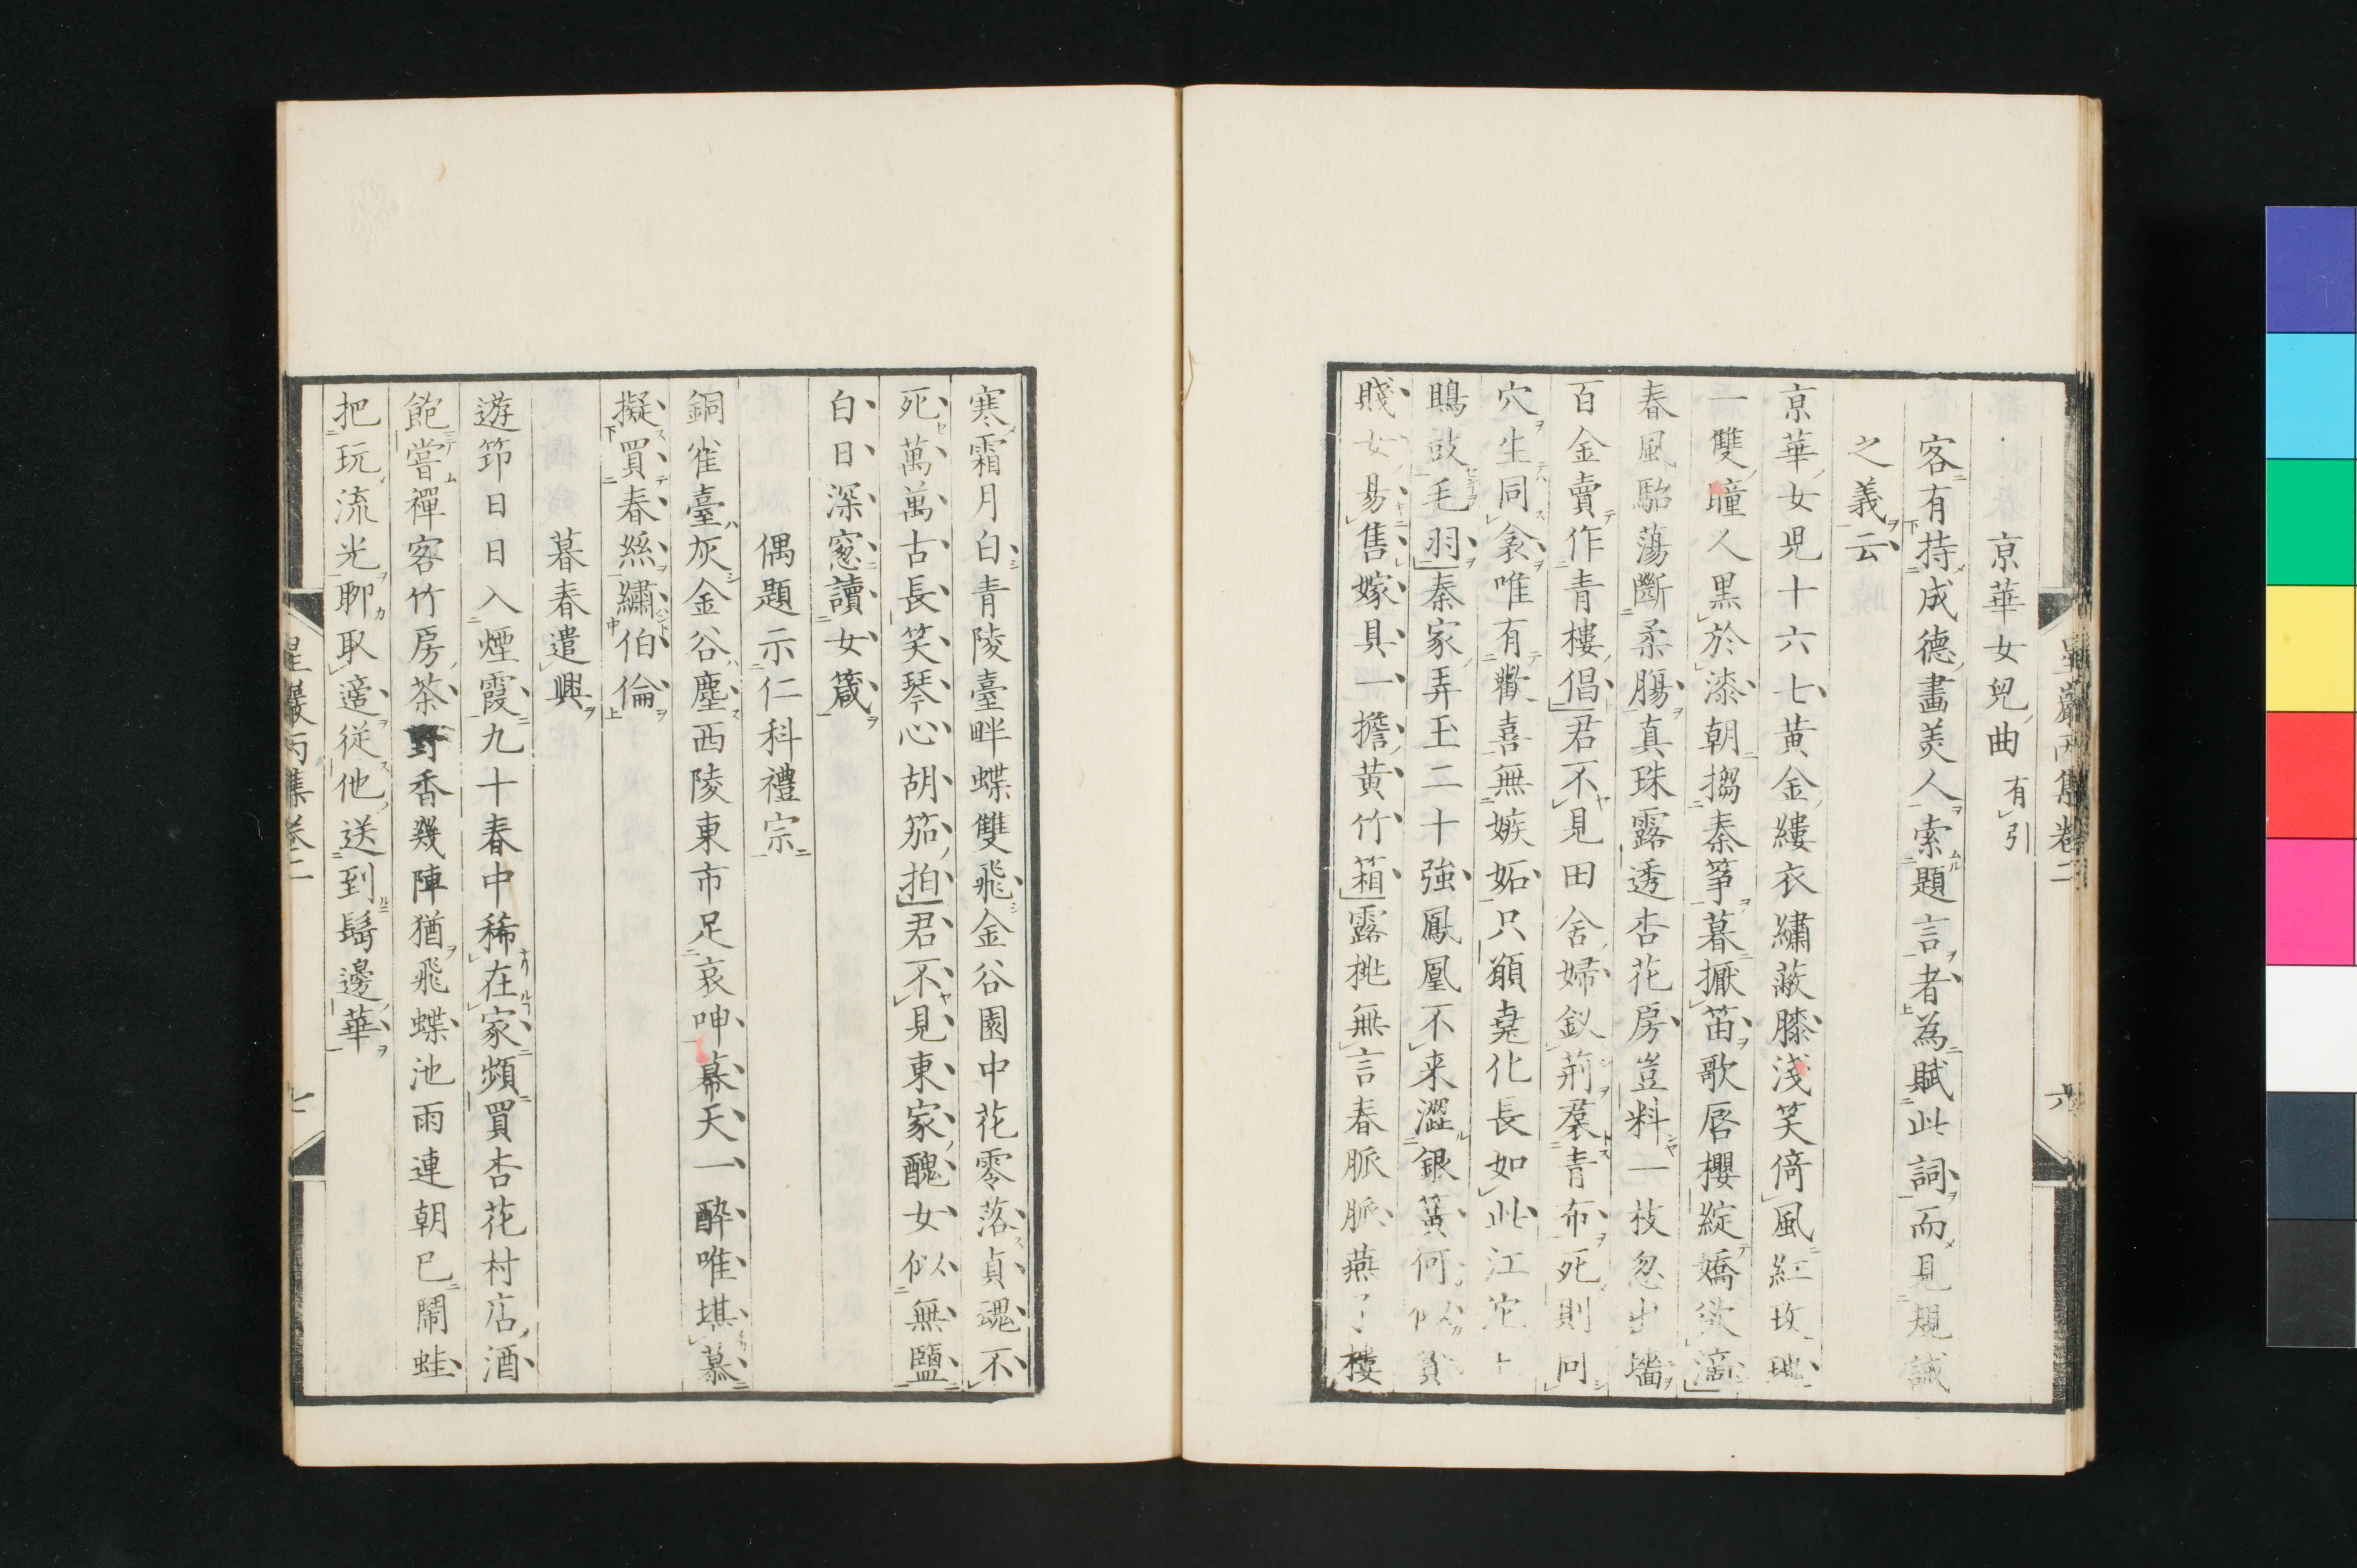 京華女兒曲有引
客有持成德畫美人索題言者為賦此詞而見規誡
之義云
京華女兒十六七黃金縷衣繡蔽膝淺笑倚風紅玫瑰
一雙瞳人黑於漆朝搊秦箏暮擫笛歌唇櫻綻嬌欲滴
春風駘蕩斷柔腸真珠露透杏花房豈料一枝忽出墻
百金賣作青樓倡君不見田舍婦釵荊裙青布死則同
穴生同衾唯有歡喜無嫉妬只願堯化長如此江沱
鴟豉毛羽秦家弄玉二十強鳳凰不来澀銀簧何似貧
賤女易售嫁具一擔黃竹箱露桃無言春脈脈燕子樓
星巖丙集卷二
六
寒霜月白青陵臺畔蝶雙飛金谷園中花零落貞魂不
死萬萬古長笑琴心胡笳拍君不見東家醜女似無鹽
白日深窻讀女箴
偶題示仁科禮宗
銅雀臺灰金谷塵西陵東市足哀呻幕天一醉唯堪慕
擬買春絲繡伯倫
暮春遣興
遊筇日日入煙霞九十春中稀在家頻買杏花村店酒
飽嘗禪客竹房茶野香幾陣猶飛蝶池雨連朝已鬧蛙
把玩流光聊取適從他送到鬢邊華
星巖丙集卷二
七